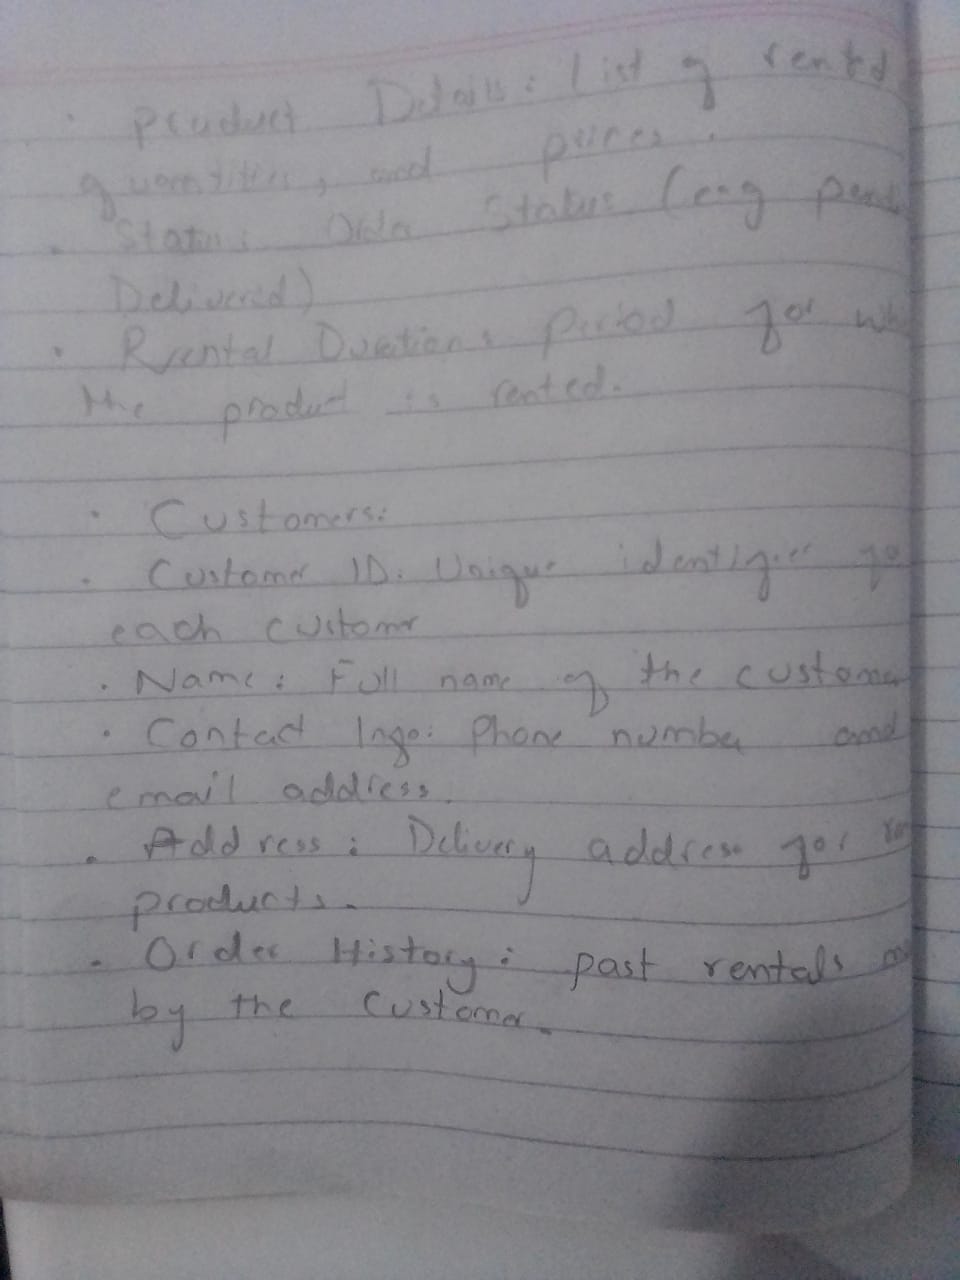 · Product Details: list of rented
quantities, and prices.
· Status: Order Status (eg
Delivered)
· Rental Duration: Period for
the product is rented.
· Customers:
· Customer ID: Unique identifier
each customer
· Name: Full name of the customer
· Contact Info: Phone number and
email address.
· Address: Delivery address for
products.
· Order History: past rentals
by the customer.